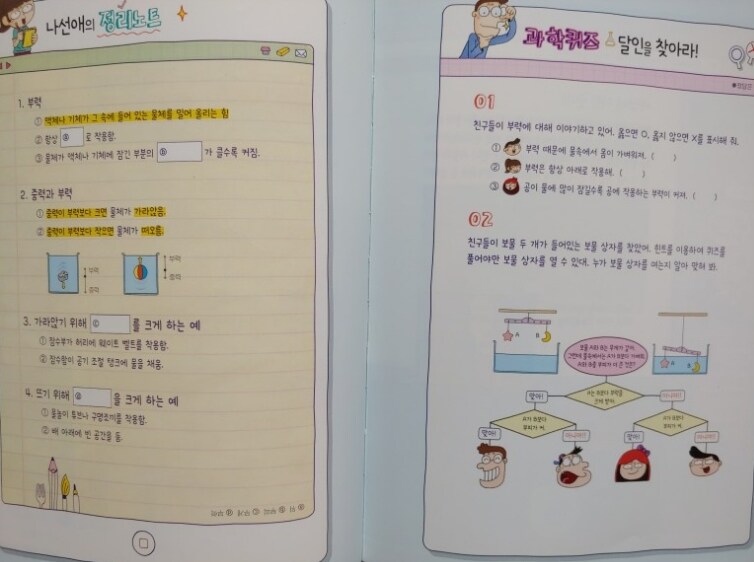 나선애의 정리노트
1. 부력
① 액체나 기체가 그 속에 들어 있는 물체를 밀어 올리는 힘
② 항상 ⓐ 로 작용함.
③ 물체가 액체나 기체에 잠긴 부분의 ⓑ 가 클수록 커짐.
2. 중력과 부력
① 중력이 부력보다 크면 물체가 가라앉음.
② 중력이 부력보다 작으면 물체가 떠오름.
부력
중력
부력
중력
3. 가라앉기 위해 ⓒ 를 크게 하는 예
① 잠수부가 허리에 웨이트 벨트를 착용함.
② 잠수함이 공기 조절 탱크에 물을 채움.
4. 뜨기 위해 ⓓ 을 크게 하는 예
① 물놀이 튜브나 구명조끼를 착용함.
② 배 아래에 빈 공간을 둠.
ⓐ 위 ⓑ 부피 ⓒ 무게 ⓓ 부력
과학퀴즈 달인을 찾아라!
01
친구들이 부력에 대해 이야기하고 있어. 옳으면 O, 옳지 않으면 X를 표시해 줘.
① 부력 때문에 물속에서 몸이 가벼워져. ( )
② 부력은 항상 아래로 작용해. ( )
③ 공이 물에 많이 잠길수록 공에 작용하는 부력이 커져. ( )
02
친구들이 보물 두 개가 들어있는 보물 상자를 찾았어. 힌트를 이용하여 퀴즈를
풀어야만 보물 상자를 열 수 있대. 누가 보물 상자를 여는지 알아 맞혀 봐.
A B
A B
보물 A와 B는 무게가 같아.
그런데 물속에서는 A가 B보다 가벼워.
A와 B중 부피가 더 큰 것은?
맞아!
A는 B보다 부력을
크게 받아.
아니야!
A가 B보다
부피가 커.
A가 B보다
부피가 커.
맞아!
아니야!
맞아!
아니야!